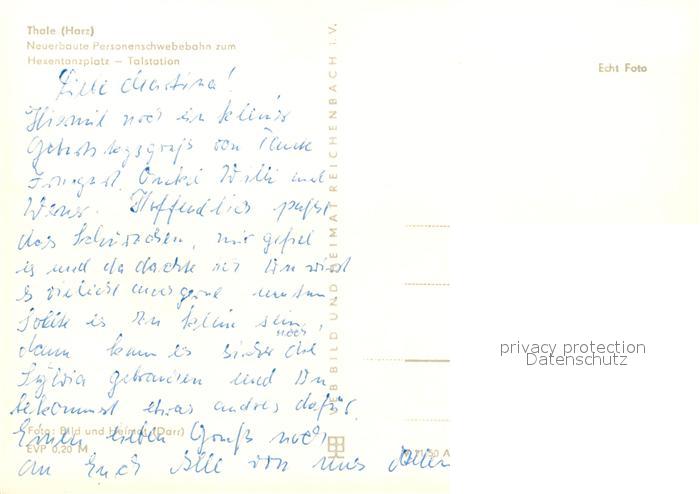 Thale (Harz)
Neuerbaute Personenschwebebahn zum
Hexentanzplatz — Talstation
Echt Foto
Liebe Martina!
Hiermit noch ein kleiner
Geburtstagsgruß von Tante
Irmgard, Onkel Willi und
Hoffentlich paßt
das Schürzchen, mir gefiel
es und da dachte ich Du wirst
es vielleicht auch gerne
Sollte es zu klein sein,
dann kann es sicher noch die
Sylvia gebrauchen und Du
bekommst etwas andres dafür.
Einen lieben Gruß noch
an Euch Alle von uns Allen
VEB BILD UND HEIMAT REICHENBACH i. V.
Foto: Bild und Heimat (Darr)
EVP 0,20 M
privacy protection
Datenschutz